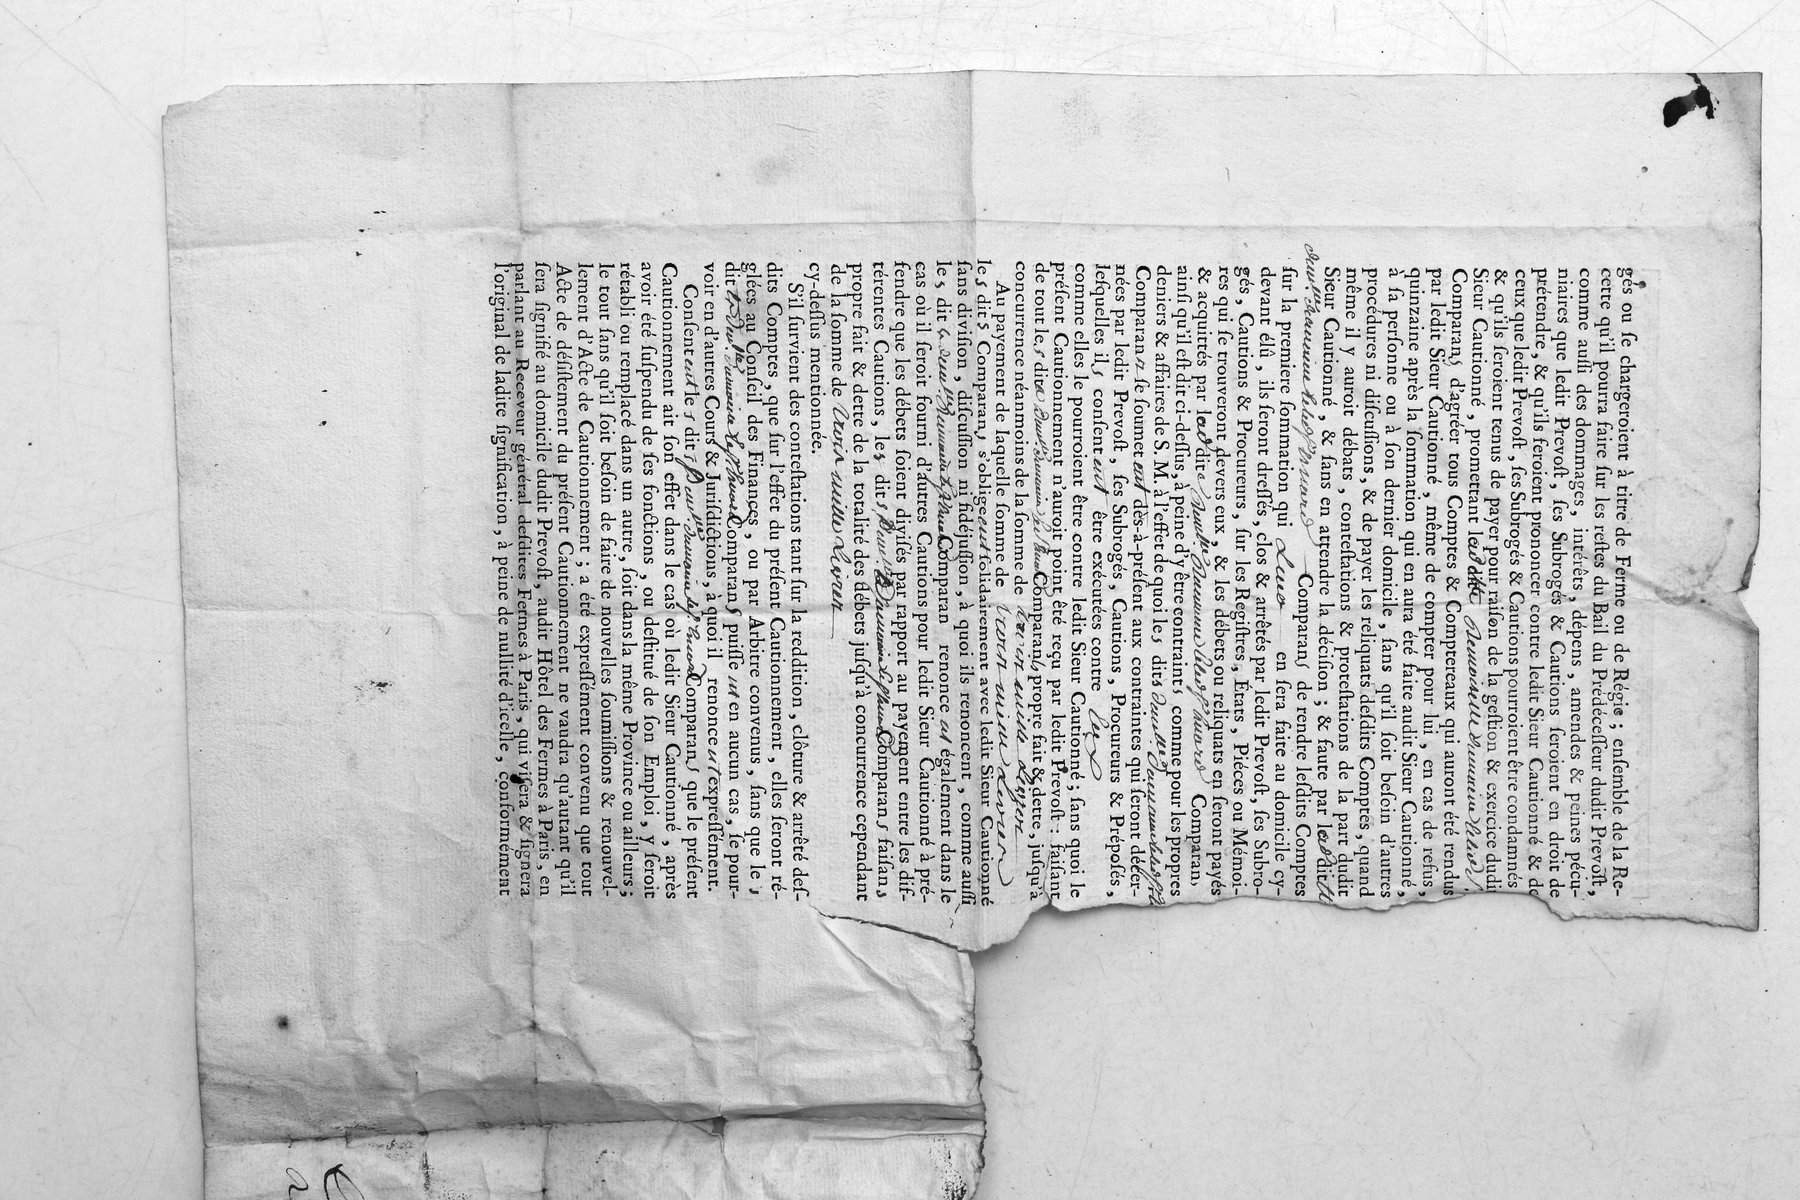 gés ou ſe chargeroient à titre de Ferme ou de Régie ; enſemble de la Re-
cette qu'il pourra faire ſur les reſtes du Bail du Prédéceſſeur dudit Prevoſt,
comme auſſi des dommages, intérêts, dépens, amendes & peines pécu-
niaires que ledit Prevoſt, ſes Subrogés & Cautions ſeroient en droit de
prétendre, & qu'ils ſeroient prononcer contre ledit Sieur Cautionné & de
ceux que ledit Prevoſt, ſes Subrogés & Cautions pourroient être condamnés
& qu'ils ſeroient tenus de payer pour raiſon de la geſtion & exercice dudit
Sieur Cautionné, promettant
Comparans d'agréer tous Comptes & Comptereaux qui auront été rendus
par ledit Sieur Cautionné, même de compter pour lui, en cas de refus,
quinzaine après la ſommation qui en aura été faite audit Sieur Cautionné,
à ſa perſonne ou à ſon dernier domicile, ſans qu'il ſoit beſoin d'autres
procédures ni diſcuſſions, & de payer les reliquats deſdits Comptes, quand
même il y auroit débats, conteſtations & proteſtations de la part dudit
Sieur Cautionné, & ſans en attendre la déciſion ; & faute par
Comparans de rendre leſdits Comptes
ſur la premiere ſommation qui Luo en ſera faite au domicile cy-
devant élû, ils ſeront dreſſés, clos & arrêtés par ledit Prevoſt, ſes Subro-
gés, Cautions & Procureurs, ſur les Regiſtres, États, Piéces ou Mémoi-
res qui ſe trouveront devers eux, & les débets ou reliquats en ſeront payés
& acquittés par Comparans
ainſi qu'il eſt dit ci-deſſus, à peine d'y être contraints comme pour les propres
deniers & affaires de S. M. à l'effet de quoi les dits
Comparans ſe ſoumettent dès-à-préſent aux contraintes qui ſeront décer-
nées par ledit Prevoſt, ſes Subrogés, Cautions, Procureurs & Prépoſés,
leſquelles ils conſentent être exécutées contre eux
comme elles le pourroient être contre ledit Sieur Cautionné ; ſans quoi le
préſent Cautionnement n'auroit point été reçu par ledit Prevoſt : faiſant
de tout les dits Comparans propre fait & dette, juſqu'à
concurrence néanmoins de la ſomme de trois mille Livres
Au payement de laquelle ſomme de trois mille Livres
les dits Comparans s'obligent ſolidairement avec ledit Sieur Cautionné
ſans diviſion, diſcuſſion ni fidéjuſſion, à quoi ils renoncent, comme auſſi
les dits Comparans renoncent également dans le
cas où il ſeroit fourni d'autres Cautions pour ledit Sieur Cautionné à pré-
tendre que les débets ſoient diviſés par rapport au payement entre les dif-
férentes Cautions, les dits Comparans faiſans
propre fait & dette de la totalité des débets juſqu'à concurrence cependant
de la ſomme de trois mille Livres
cy-deſſus mentionnée.
S'il ſurvient des conteſtations tant ſur la reddition, clôture & arrêté deſ-
dits Comptes, que ſur l'effet du préſent Cautionnement, elles ſeront ré-
glées au Conſeil des Finances, ou par Arbitre convenus, ſans que les
dit Comparans puiſſent en aucun cas, ſe pour-
voir en d'autres Cours & Juriſdictions, à quoi il renoncent expreſſément.
Conſentent les dits Comparans que le préſent
Cautionnement ait ſon effet dans le cas où ledit Sieur Cautionné, après
avoir été ſuſpendu de ſes fonctions, ou deſtitué de ſon Emploi, y ſeroit
rétabli ou remplacé dans un autre, ſoit dans la même Province ou ailleurs ;
le tout ſans qu'il ſoit beſoin de faire de nouvelles ſoumiſſions & renouvel-
lement d'Acte de Cautionnement ; a été expreſſément convenu que tout
Acte de déſiſtement du préſent Cautionnement ne vaudra qu'autant qu'il
ſera ſignifié au domicile dudit Prevoſt, audit Hôtel des Fermes à Paris, en
parlant au Receveur général deſdites Fermes à Paris, qui viſera & ſignera
l'original de ladite ſignification, à peine de nullité d'icelle, conformément